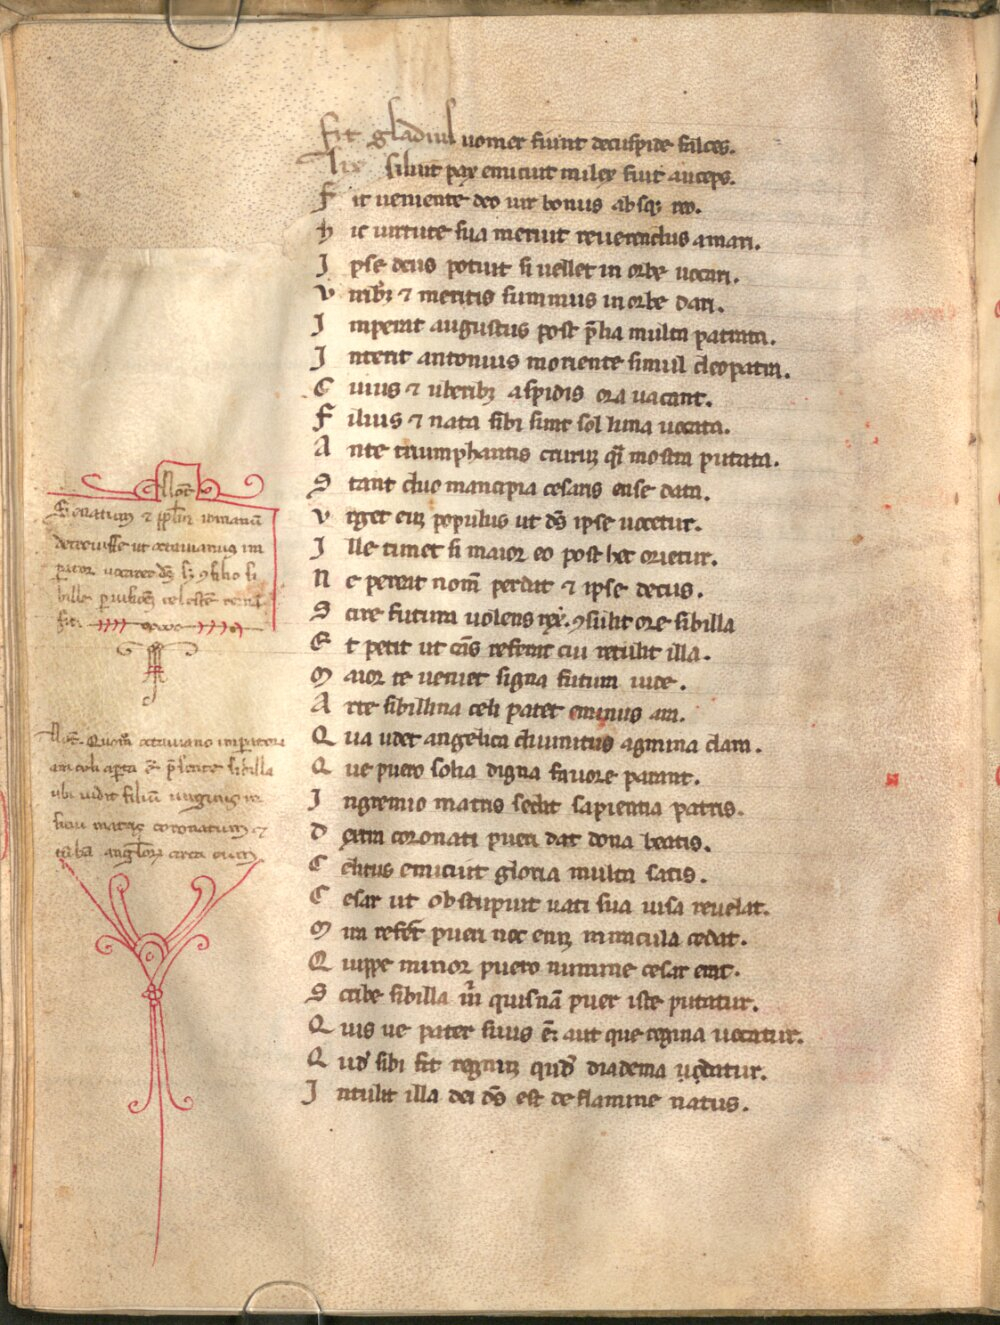 Fit gladius uomer fiunt decuspide falces.
siluit pax emicuit miles fuit auceps.
F it ueniente deo uir bonus absqꝫ reo.
h ic uirtute sua meruit reuerendus amari.
I pse deus potuit si uellet in orbe uocari.
V iribꝫ ⁊ meritis summus in orbe dari.
I mperat augustus post p̄lia multa patrata.
I nterit antonius moriente simul cleopatra.
C uius ⁊ uberibꝫ aspidis ora uacant.
F ilius ⁊ nata sibi sunt sol luna uocata.
A nte triumphantis currū qͣ mostra putata.
S tant duo mancipia cesaris ense data.
V rget eū populus ut dn̄s ipse uocetur.
I lle timet si maior eo post hec orietur.
N e pereat nom̄ perdat ⁊ ipse decus.
S cire futura uolens rex ꝯsulit ore sibilla
E t petit ut cā̄s referat cui retulit illa.
M aior te ueniet signa futura uide.
A rte sibillina celi patet eminus aura.
Q ua uidet angelica diuinitus agmina clara.
Q ue puero solia digna fauore parant.
I ngremio matris sedit sapientia patris.
D extra coronati pueri dat dona beatis.
C elitus emicuit gloria multa satis.
C esar ut obstupuit uati sua uisa reuelat.
M ira refert pueri nec enī miracula celat.
Q uippe minor puero numine cesar erat.
S cribe sibilla m̄ quisnā puer iste putatur.
Q uis ue pater suus ē. aut que regina uocatur.
Q uid sibi fit regnū quid diadema datur.
I ntulit illa dei dn̄s est de flamine natus.
Not̄
Senatum ⁊ ppl̄m romanū
decreuisse ut octauianus im
perator uocaret̄ dn̄s sꝫ ꝯsilio si
bille
fit.
Not̄. Quom̄ octauiano imperatori
aura celi apta ē p̄sente sibilla
ubi uidit filiū uirginis in
sinu matris coronatum ⁊
turbā anglorū circa eum